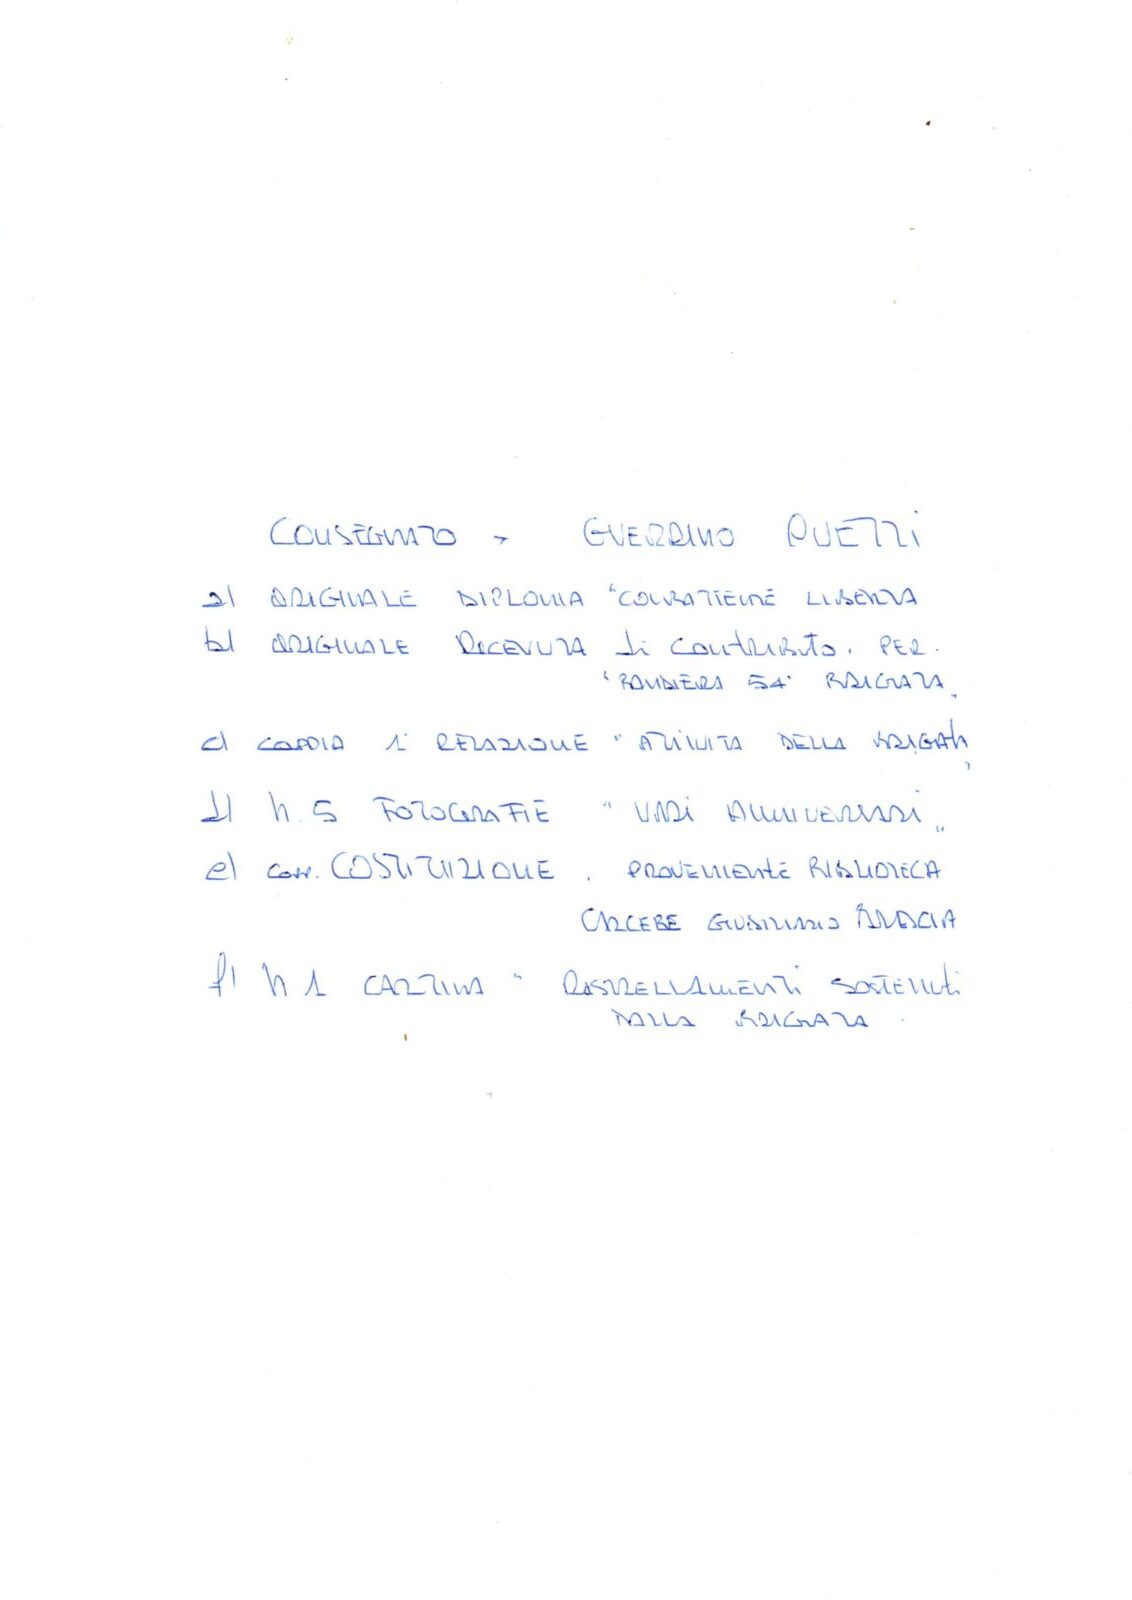 CONSEGNATO - GUERRINO
a) ORIGINALE DIPLOMA "COMBATTENTE
b) ORIGINALE RICEVUTA di CONTRIBUTO. PER.
"BANDIERA 54° BRIGATA"
c) COPPIA 1° RELAZIONE "ATTIVITA DELLA BRIGATA"
d) N. 5 FOTOGRAFIE "VARI ANNIVERSARI"
e) COSTITUZIONE . PROVENIENTE BIBLIOTECA
CARCERE GIUDIZIARIO BRESCIA
f) N 1 CARTINA " RASTRELLAMENTI SOSTENUTI
DALLA BRIGATA